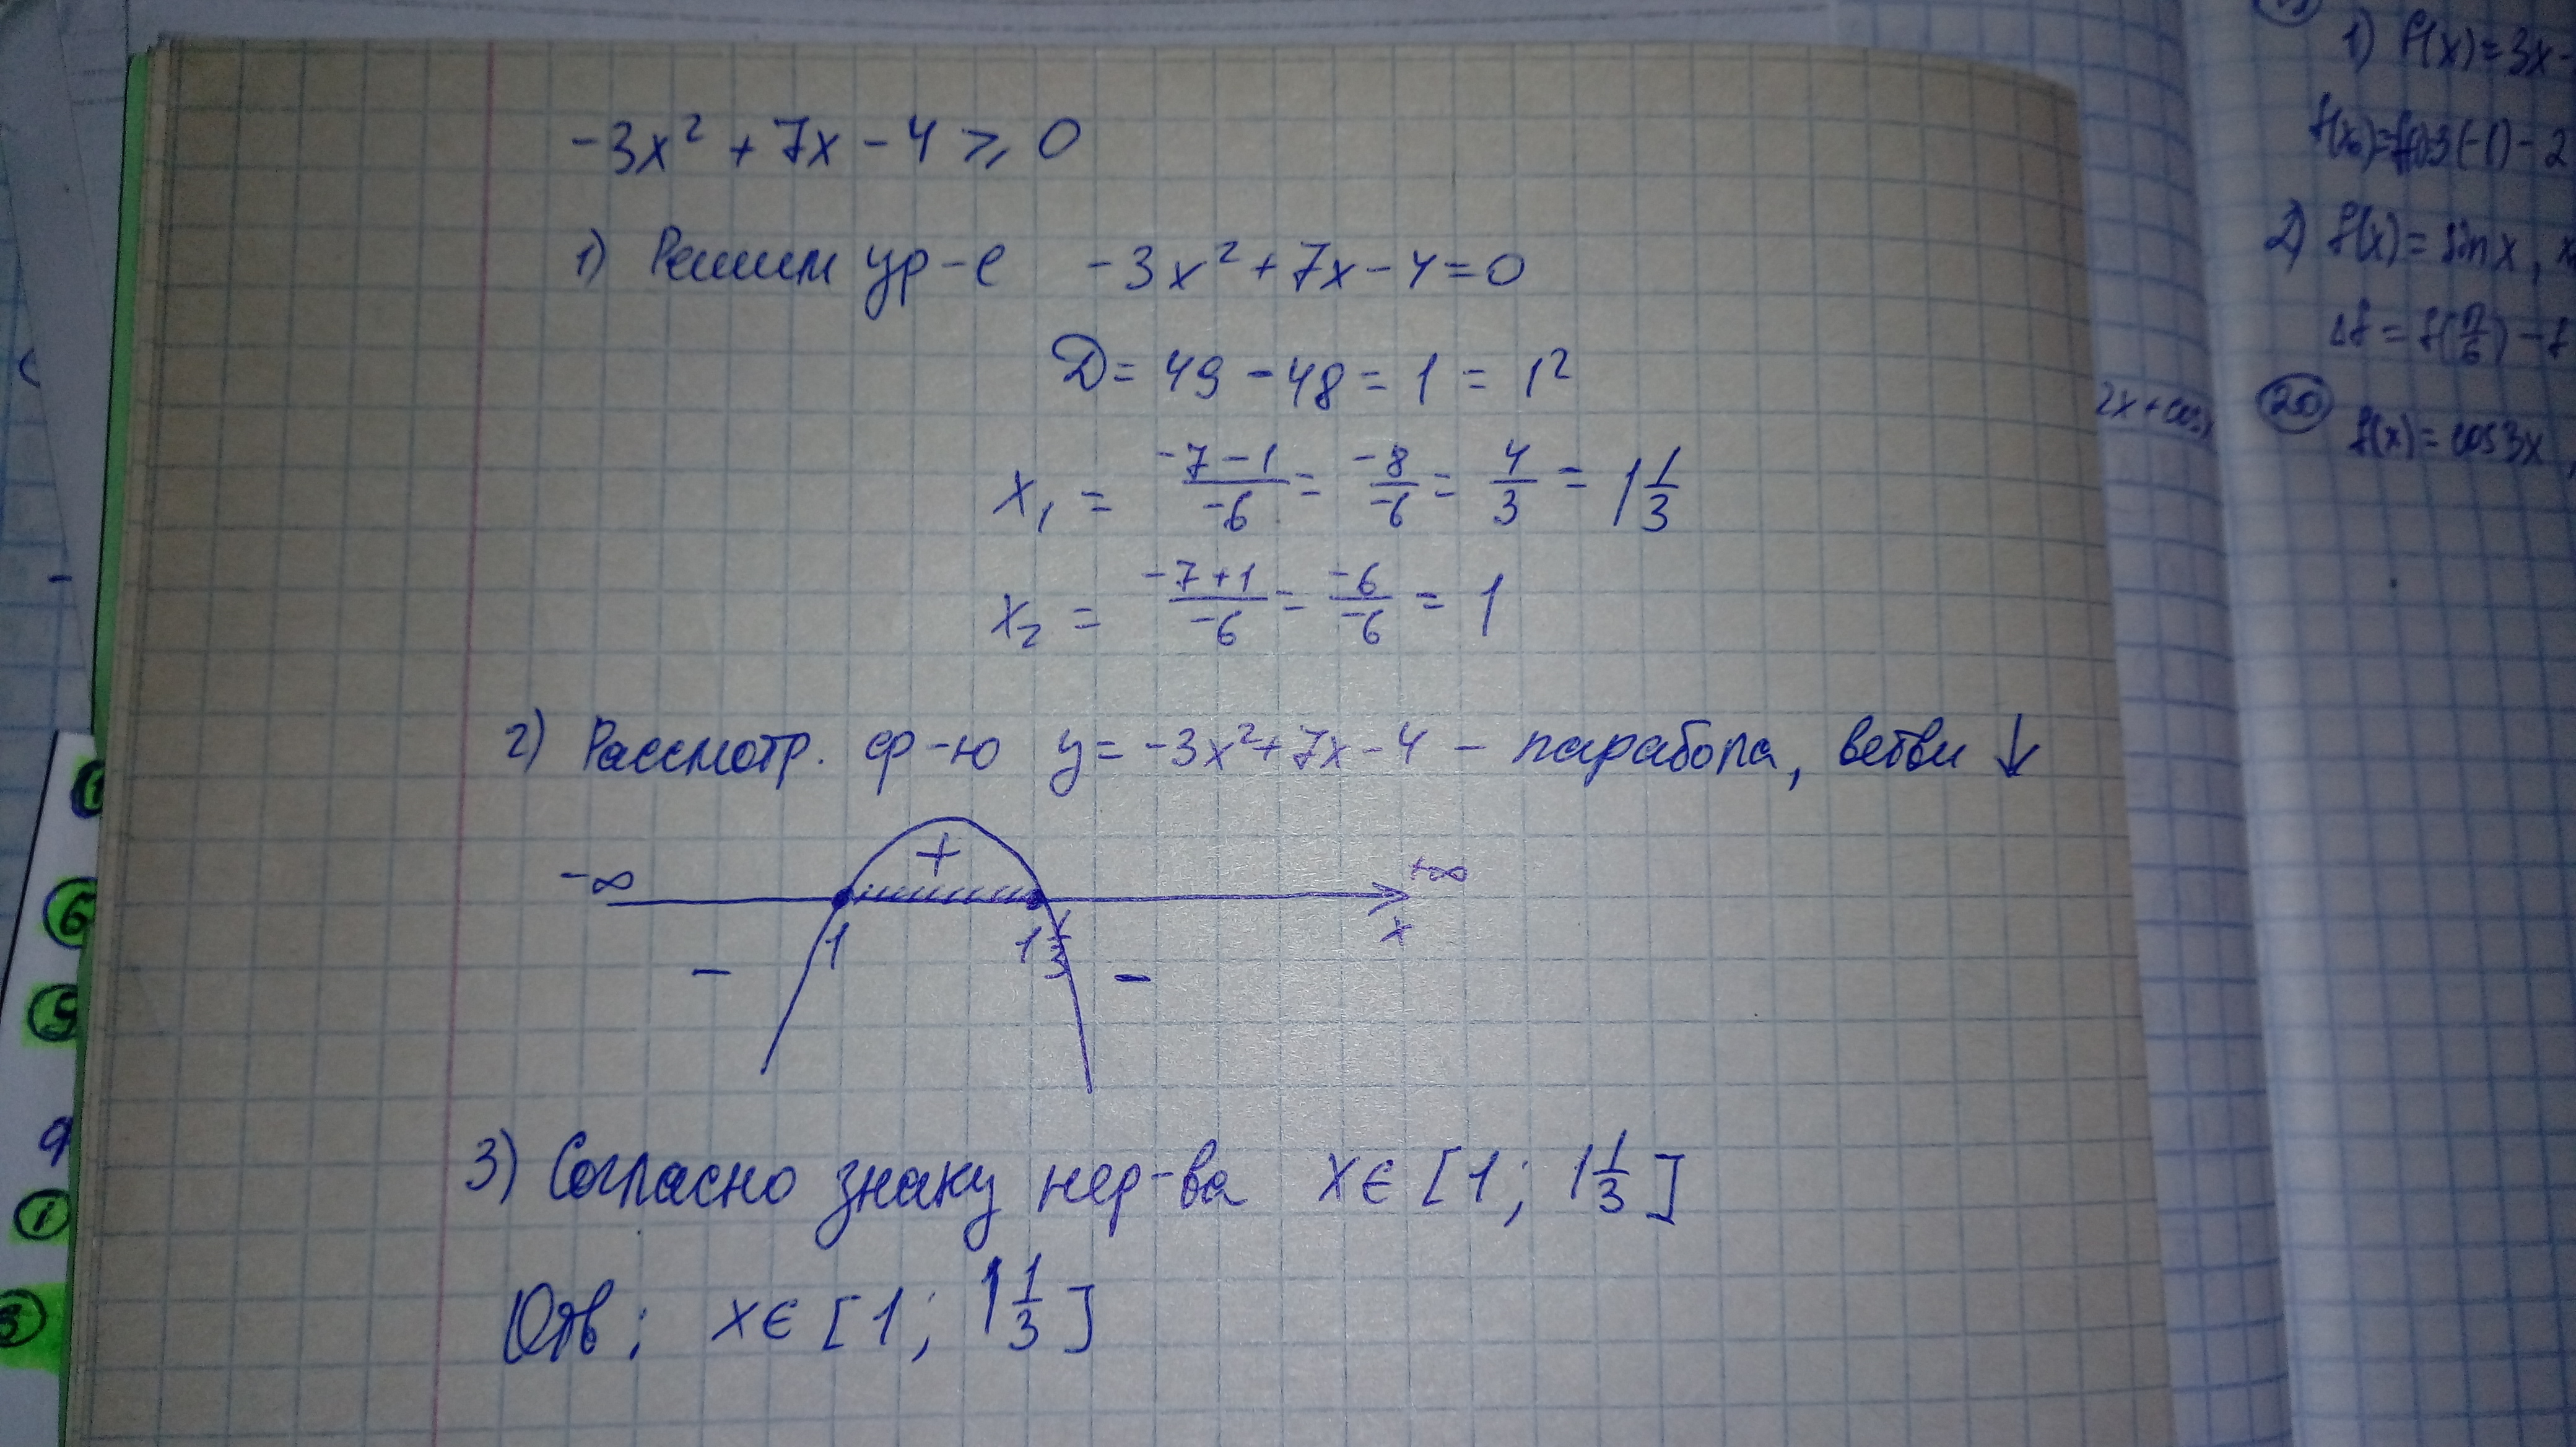 -3x² + 7x - 4 ⩾ 0
1) Решим ур-е -3x² + 7x - 4 = 0
D = 49 - 48 = 1 = 1²
x₁ = (-7-1)/(-6) = (-8)/(-6) = 4/3 = 1 1/3
x₂ = (-7+1)/(-6) = (-6)/(-6) = 1
2) Рассмотр. ф-ю y = -3x² + 7x - 4 - парабола, ветви ↓
+
-∞ +∞
x
1 1 1/3
- -
3) Согласно знаку нер-ва x ∈ [1; 1 1/3]
Отв: x ∈ [1; 1 1/3]
1) f(x) = 3x -
2) f(x) = sin x,
Δf = f(π/6) - f
2x + cos x
20 f(x) = cos 3x
6
5
1
3